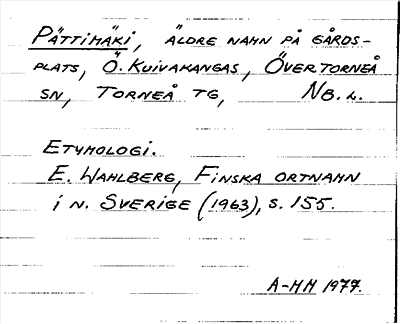 Pättimäki, äldre namn på gårds-
plats, Ö. Kuivakangas, Övertorneå
sn, Torneå tg, Nb. l.
Etymologi.
E. Wahlberg, Finska ortnamn
i n. Sverige (1963), s. 155.
A-MM 1977.